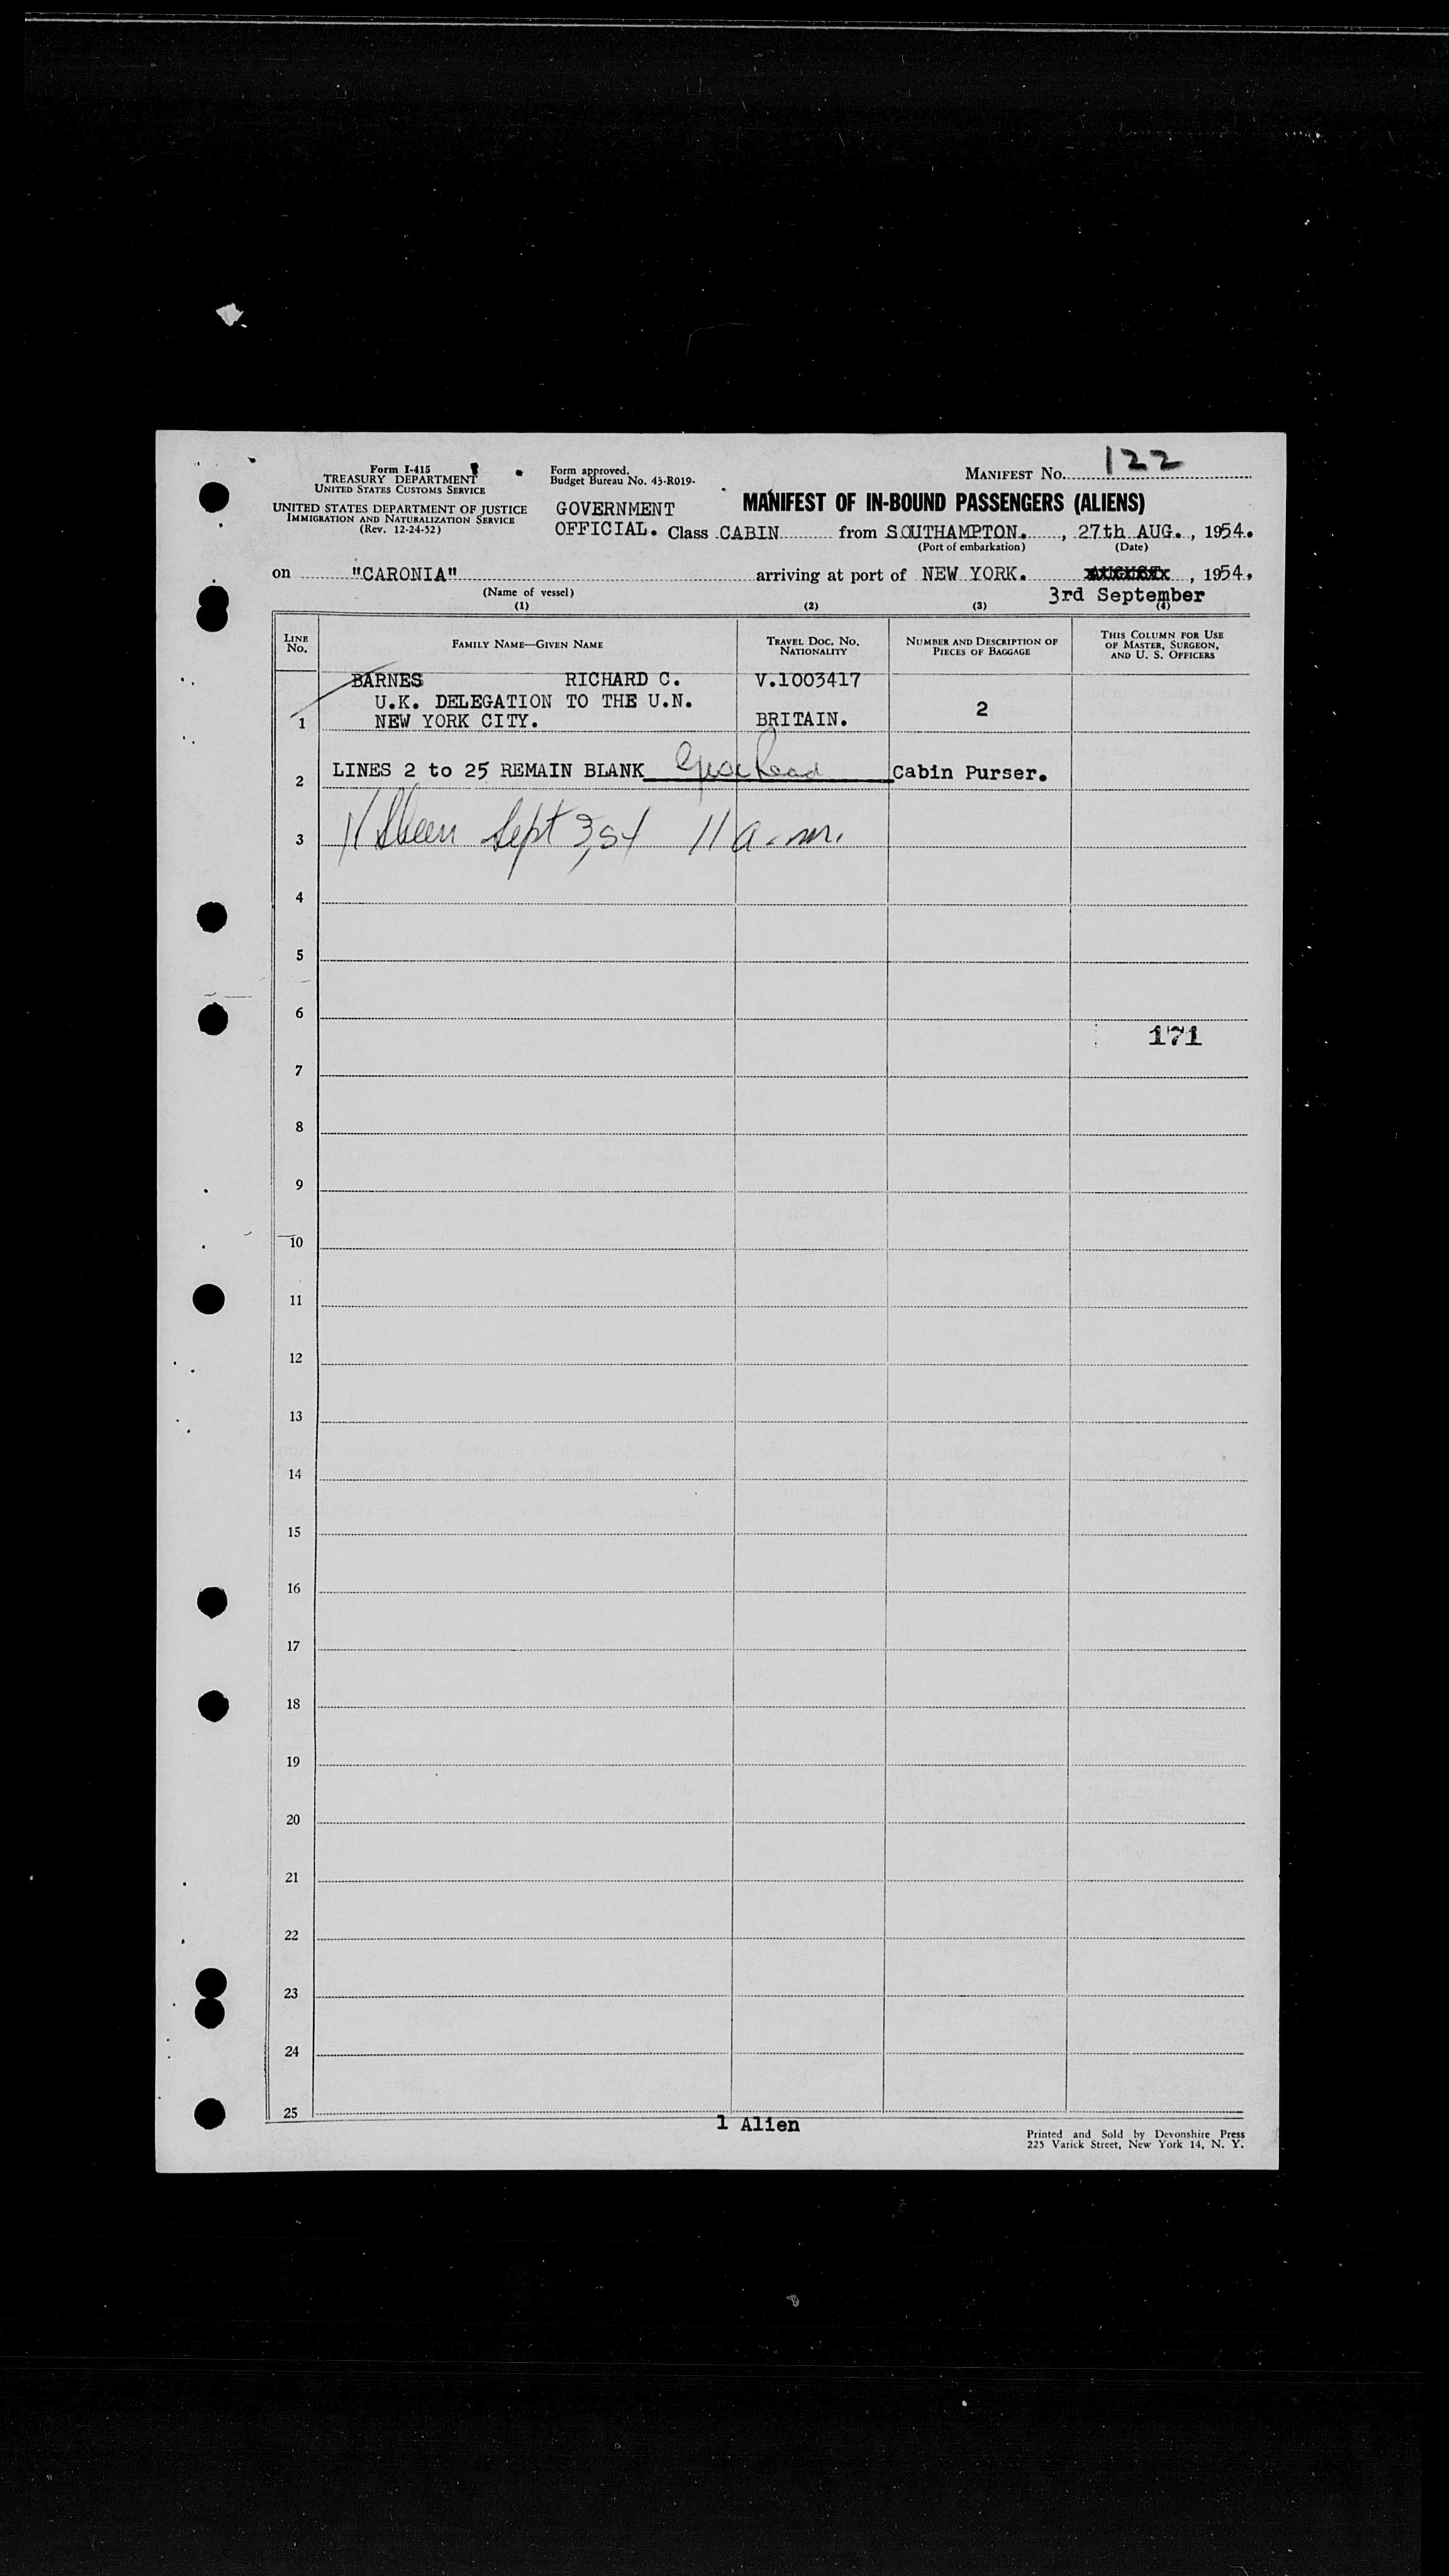 Form I-415
TREASURY DEPARTMENT
UNITED STATES CUSTOMS SERVICE
UNITED STATES DEPARTMENT OF JUSTICE
IMMIGRATION AND NATURALIZATION SERVICE
(Rev. 12-24-52)
Form approved.
Budget Bureau No. 43-R019-
MANIFEST No. 122
MANIFEST OF IN-BOUND PASSENGERS (ALIENS)
GOVERNMENT
OFFICIAL. Class CABIN from SOUTHAMPTON. , 27th AUG. , 1954.
(Port of embarkation) (Date)
on "CARONIA" arriving at port of NEW YORK. AUGUST , 1954.
(Name of vessel) 3rd September
(1) (2) (3) (4)
LINE No. FAMILY NAME—GIVEN NAME TRAVEL DOC. NO. NATIONALITY NUMBER AND DESCRIPTION OF PIECES OF BAGGAGE THIS COLUMN FOR USE OF MASTER, SURGEON, AND U. S. OFFICERS
BARNES RICHARD C. V.1003417
U.K. DELEGATION TO THE U.N. 2
1 NEW YORK CITY. BRITAIN.
2 LINES 2 to 25 REMAIN BLANK Cabin Purser.
3 Sept 3, 54 11 a.m.
4
5
6
171
7
8
9
10
11
12
13
14
15
16
17
18
19
20
21
22
23
24
25
1 Alien
Printed and Sold by Devonshire Press
225 Varick Street, New York 14, N. Y.